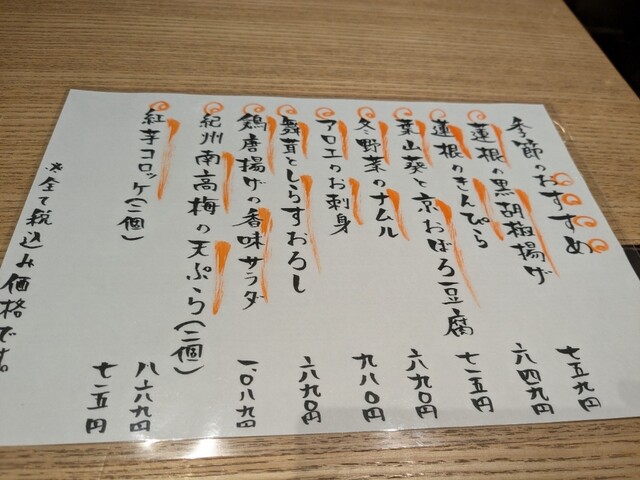 季節のおすすめ
蓮根の黒胡椒揚げ 七五九円
蓮根のきんぴら 六四九円
葉山葵と京おぼろ豆腐 七一五円
冬野菜のナムル 六九〇円
アロエのお刺身 九八〇円
舞茸としらすおろし 六九〇円
鶏唐揚げの香味サラダ 一、〇八九円
紀州南高梅の天ぷら(二個) 八六九円
紅芋コロッケ(二個) 七一五円
※全て税込み価格です。